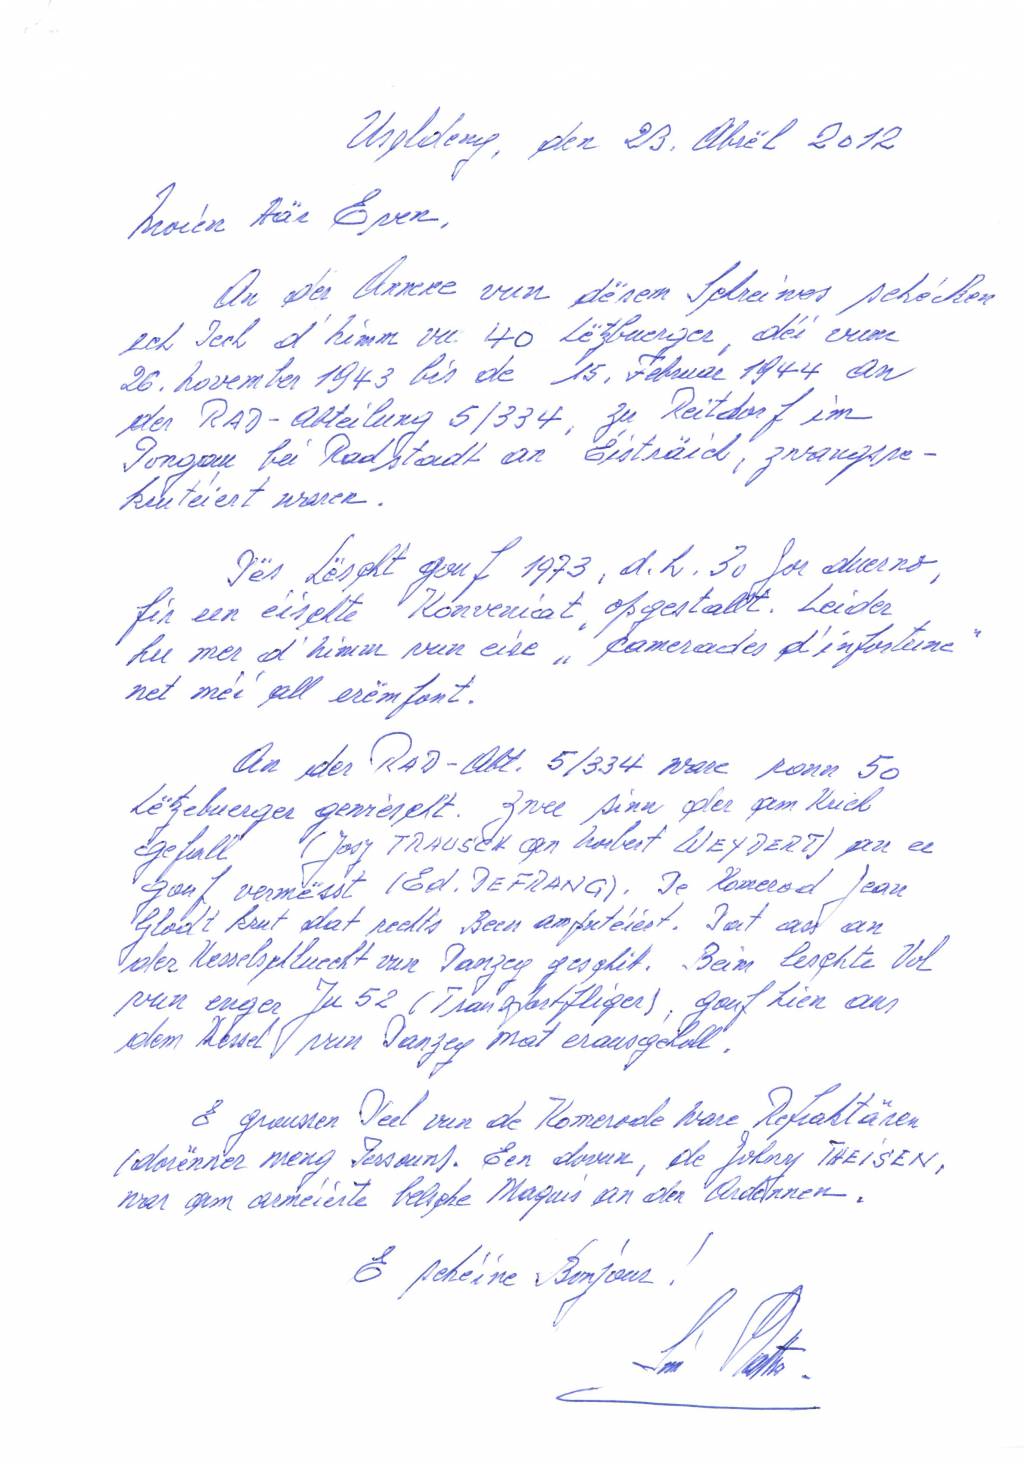 Useldeng, den 23. Abrëll 2012
Moien Här Even,
An der Annexe vun dësem Schreiwes schécken
ech Iech d'Nimm vu 40 Lëtzbuerger, déi vum
26. November 1943 bis de 15. Februar 1944 an
der RAD-Abteilung 5/334, zu Reitdorf im
Pongau bei Radstadt an Éisträich, zwangsre-
krutéiert waren.
Dës Lëscht gouf 1973, d.h. 30 Jor duerno,
fir een éischte Konveniat, opgestallt. Leider
hu mer d'Nimm vun eise „Kamerades d'infortune"
net méi all erëmfont.
An der RAD-Abt. 5/334 ware ronn 50
Lëtzebuerger gemëscht. Zwee sinn der am Krich
gefall (Josy TRAUSCH an Norbert WEYDERT) an ee
gouf vermësst (Ed. DEFRANG). De Komerod Jean
Glodt krut dat rechts Been amputéiert. Dat ass an
der Kesselschluecht vun Danzeg geschit. Beim leschte Vol
vun enger Ju 52 (Transportfliger), gouf hien aus
dem Kessel vun Danzeg mat erausgeholl.
E groussen Deel vun de Komerode ware Refraktären
(dorënner meng Persoun). Een dovun, de Johny THEISEN,
war am arméierte belsche Maquis an den Ardennen.
E schéine Bonjour!